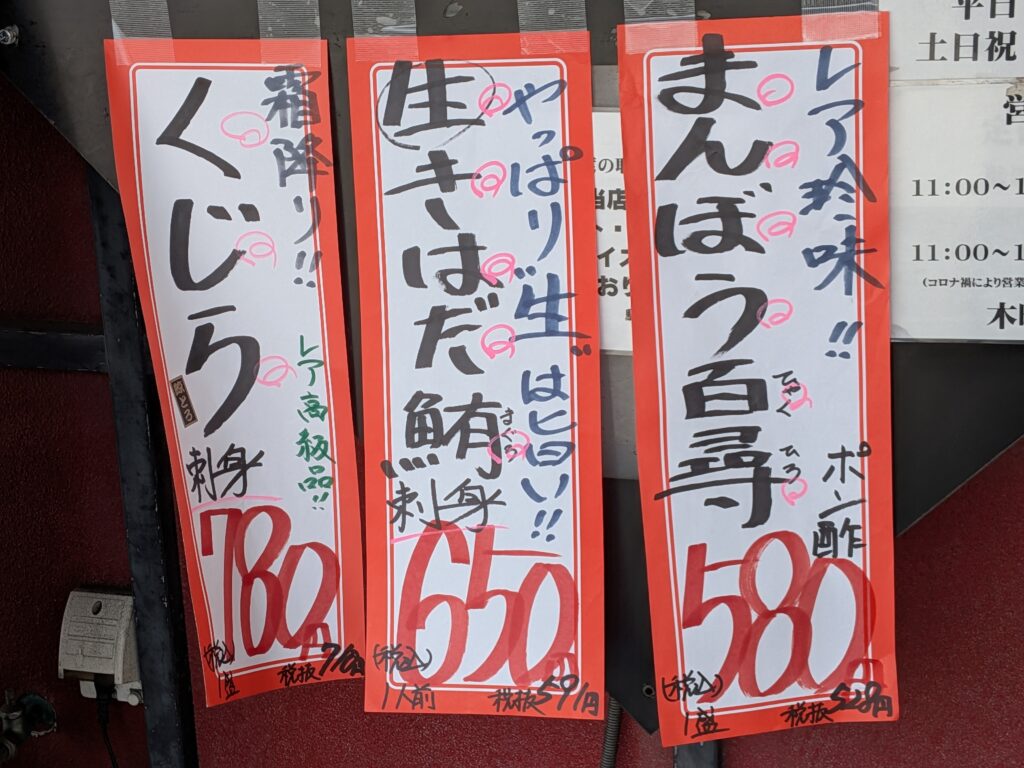 平日
土日祝
営
11:00～1
11:00～1
(コロナ禍により営業
当店
レア珍味!!
まんぼう百尋
ひゃくひろ
ポン酢
580円
(税込)
1盛
税抜528円
やっぱり"生"は旨い!!
生きはだ鮪
まぐろ
刺身
650円
(税込)
1人前
税抜591円
霜降り!!
レア高級品!!
くじら
刺身
780円
(税込)
1盛
税抜